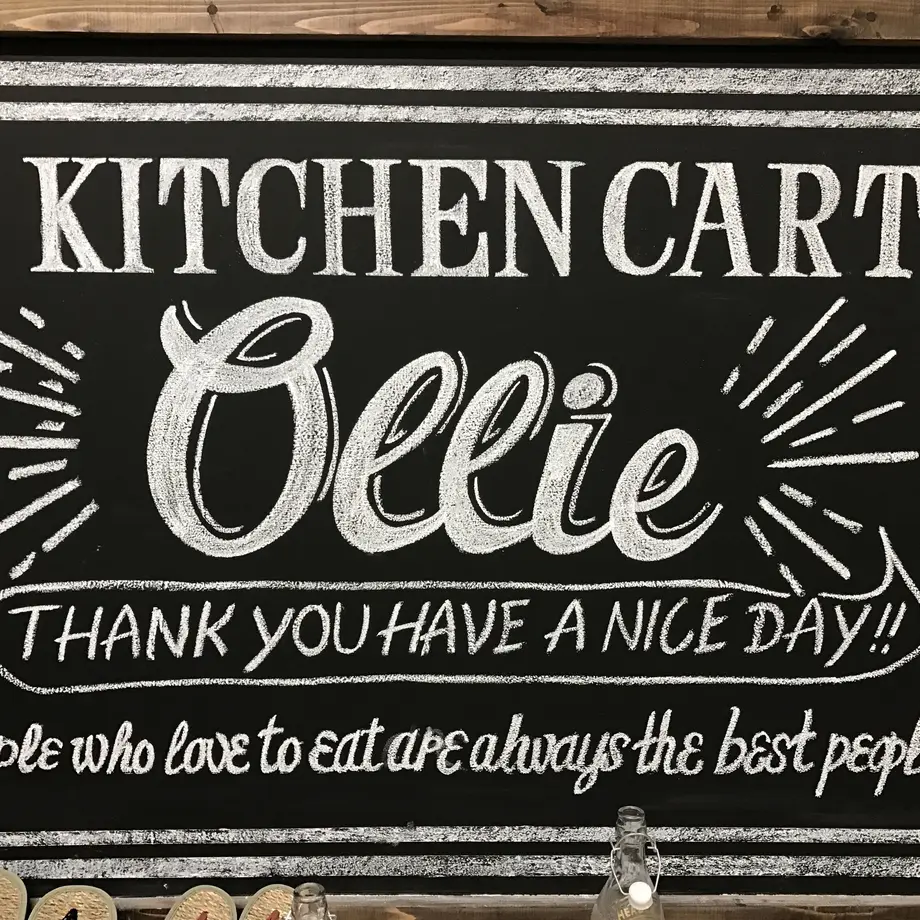 KITCHEN CART
Ollie
THANK YOU HAVE A NICE DAY!!
ple who love to eat are always the best peopl